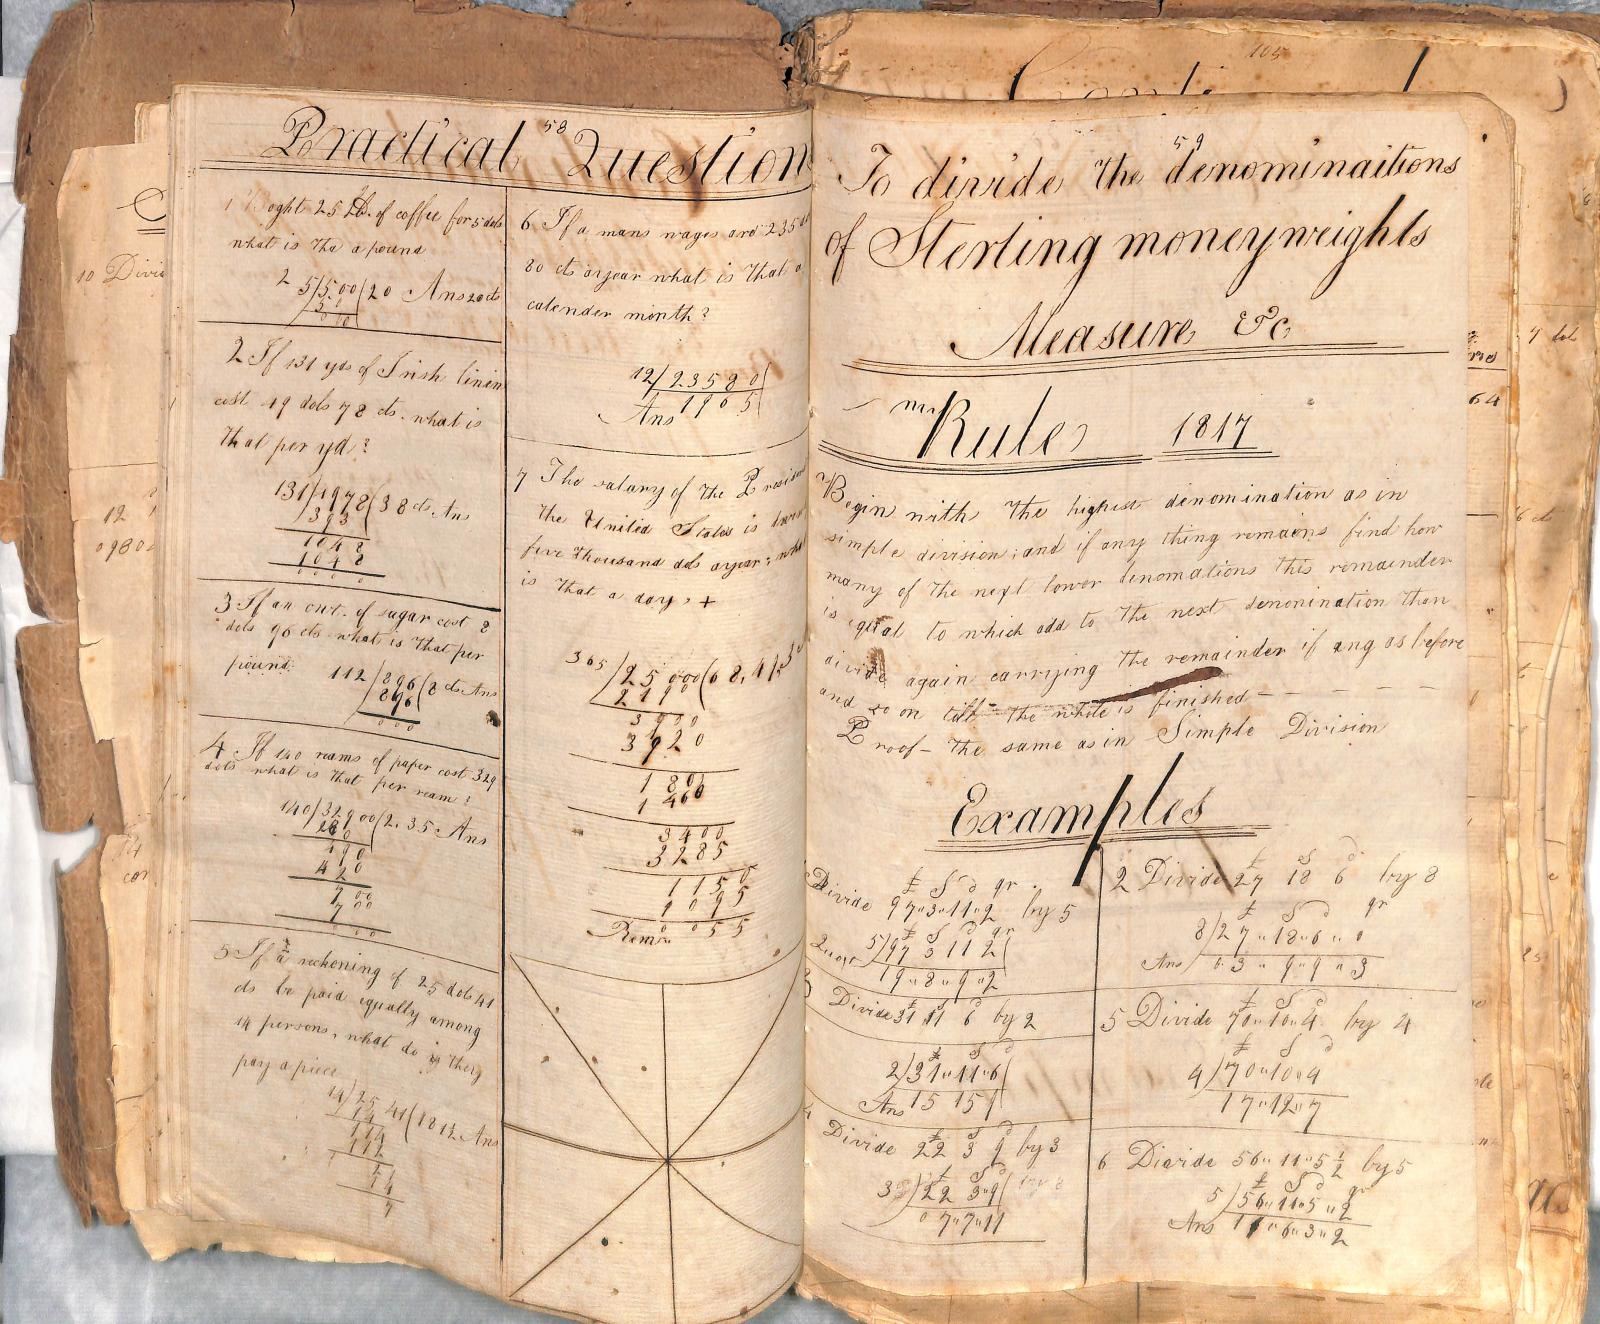 58
Practical Question
1 Boght 25 lb. of coffee for 5 dols
what is tha a pound
25/5.00(20 Ans 20 cts
50
00
2 If 131 yds of Irish linin
cost 49 dols 78 cts. what is
that per yd?
131/4978(38 cts. Ans
393
1048
1048
0000
3 If an cwt. of sugar cost 8
dols 96 cts what is that per
pound
112/896(8 cts. Ans
896
000
4 If 140 reams of paper cost 329
dols what is that per ream?
140/32900(2.35 Ans
280
490
420
700
700
000
5 If a reckoning of 25 dols 41
cts be paid equally among
14 persons, what do they
pay a piece
14/25 41(1 81 Ans
14
114
112
7
6 If a mans wages are 235
80 cts ayear what is that a
calender month?
12/23580(
Ans 1965
7 The salary of the
the United States is
five thousand dols ayear;
is that a day, +
365/25 000(68,4
2190
3
3 20
180
1460
3400
3285
1150
1095
Rem. 0055
105
59
To divide the denominaitions
of Sterling money weights
Measure &c.
Rule 1817
Begin with the highest denomination as in
simple division; and if any thing remains find how
many of the next lower denomations this remainder
is equal to which add to the next denonination than
divide again carrying the remainder if ang as before
and so on till the whole is finished - - - - -
Proof - the same as in Simple Division
Examples
£ S d qr
Divide 97"3"11"2 by 5
£ S d qr
Quot 5/97 3 11 2(
19"8"9"2
£ S d
3 Divide 31 11 6 by 2
£ S d
2/31"11"6(
Ans 15 15
£ S d
4 Divide 22 3 9 by 3
£ S d
3/22 3"9(
0 7"7"11
£ S d
2 Divide 27 18 6 by 8
£ S d qr
8/27"18"6"0
Ans 0.3"9"9"3
£ S d
5 Divide 70"10"4 by 4
£ S d
4/70"10"4
17"12"7
6 Divide 56"11"5 1/2 by 5
£ S d qr
5/56"11"5"2
Ans 11"6"3"2
10 Divi
12
64